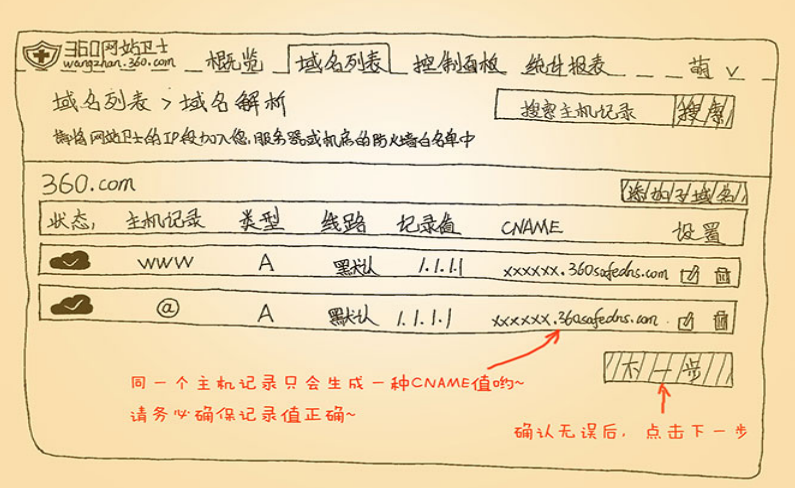 360网站卫士
wangzhan.360.com
概览 域名列表 控制面板 统计报表 萌
域名列表 > 域名解析
搜索主机记录 搜索
请将网站卫士的IP段加入您,服务器或机房的防火墙白名单中
360.com
添加子域名
状态, 主机记录 类型 线路 记录值 CNAME 设置
www A 默认 1.1.1.1 xxxxxx.360safedns.com
@ A 默认 1.1.1.1 xxxxxx.360safedns.com
下一步
同一个主机记录只会生成一种CNAME值哟~
请务必确保记录值正确~
确认无误后，点击下一步